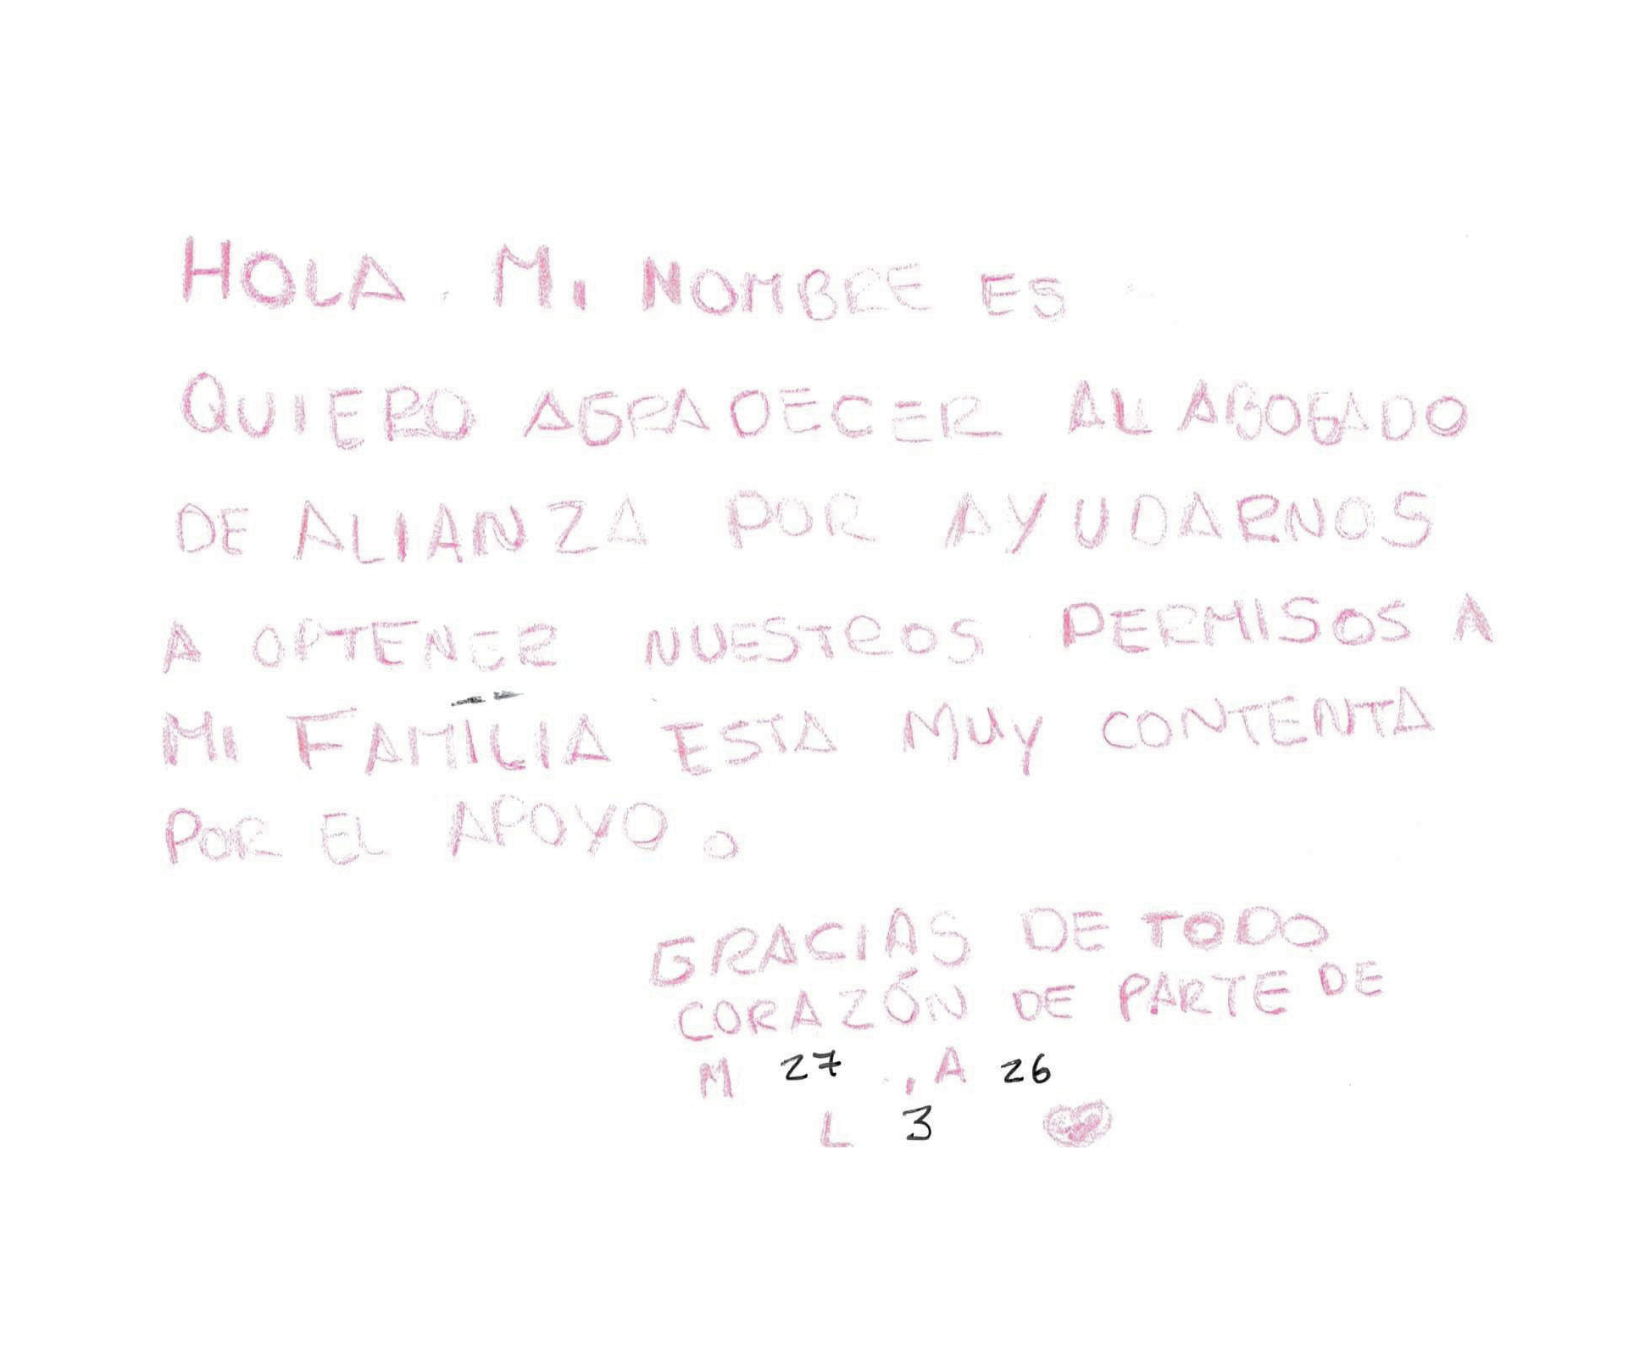 HOLA. Mi NOMBRE ES
QUIERO AGRADECER AL ABOGADO
DE ALIANZA POR AYUDARNOS
A OPTENER NUESTROS PERMISOS A
Mi FAMILIA ESTA MUY CONTENTA
POR EL APOYO.
GRACIAS DE TODO
CORAZÓN DE PARTE DE
M 27 , A 26
L 3